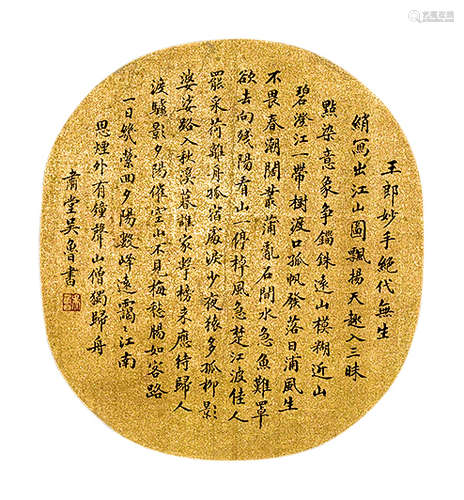 王郎妙手絕代無生
綃寫出江山圖飄揚天趣入三昧
點染意象爭錙銖遠山模糊近山
碧澄江一帶樹渡口孤帆發落日浦風生
不畏春潮闊叢蒲亂石間水急魚難罩
欲去向殘陽看山一停棹風急楚江波佳人
罷采荷離舟孤宿處淚少夜猿多孤柳影
婆娑路入秋溪暮誰家學榜來應待歸人
渡驢影夕陽催空山不見梅愁腸如客路
一日幾縈回夕陽數峰遠靄靄江南
思煙外有鐘聲山僧獨歸舟
肅堂吳魯書